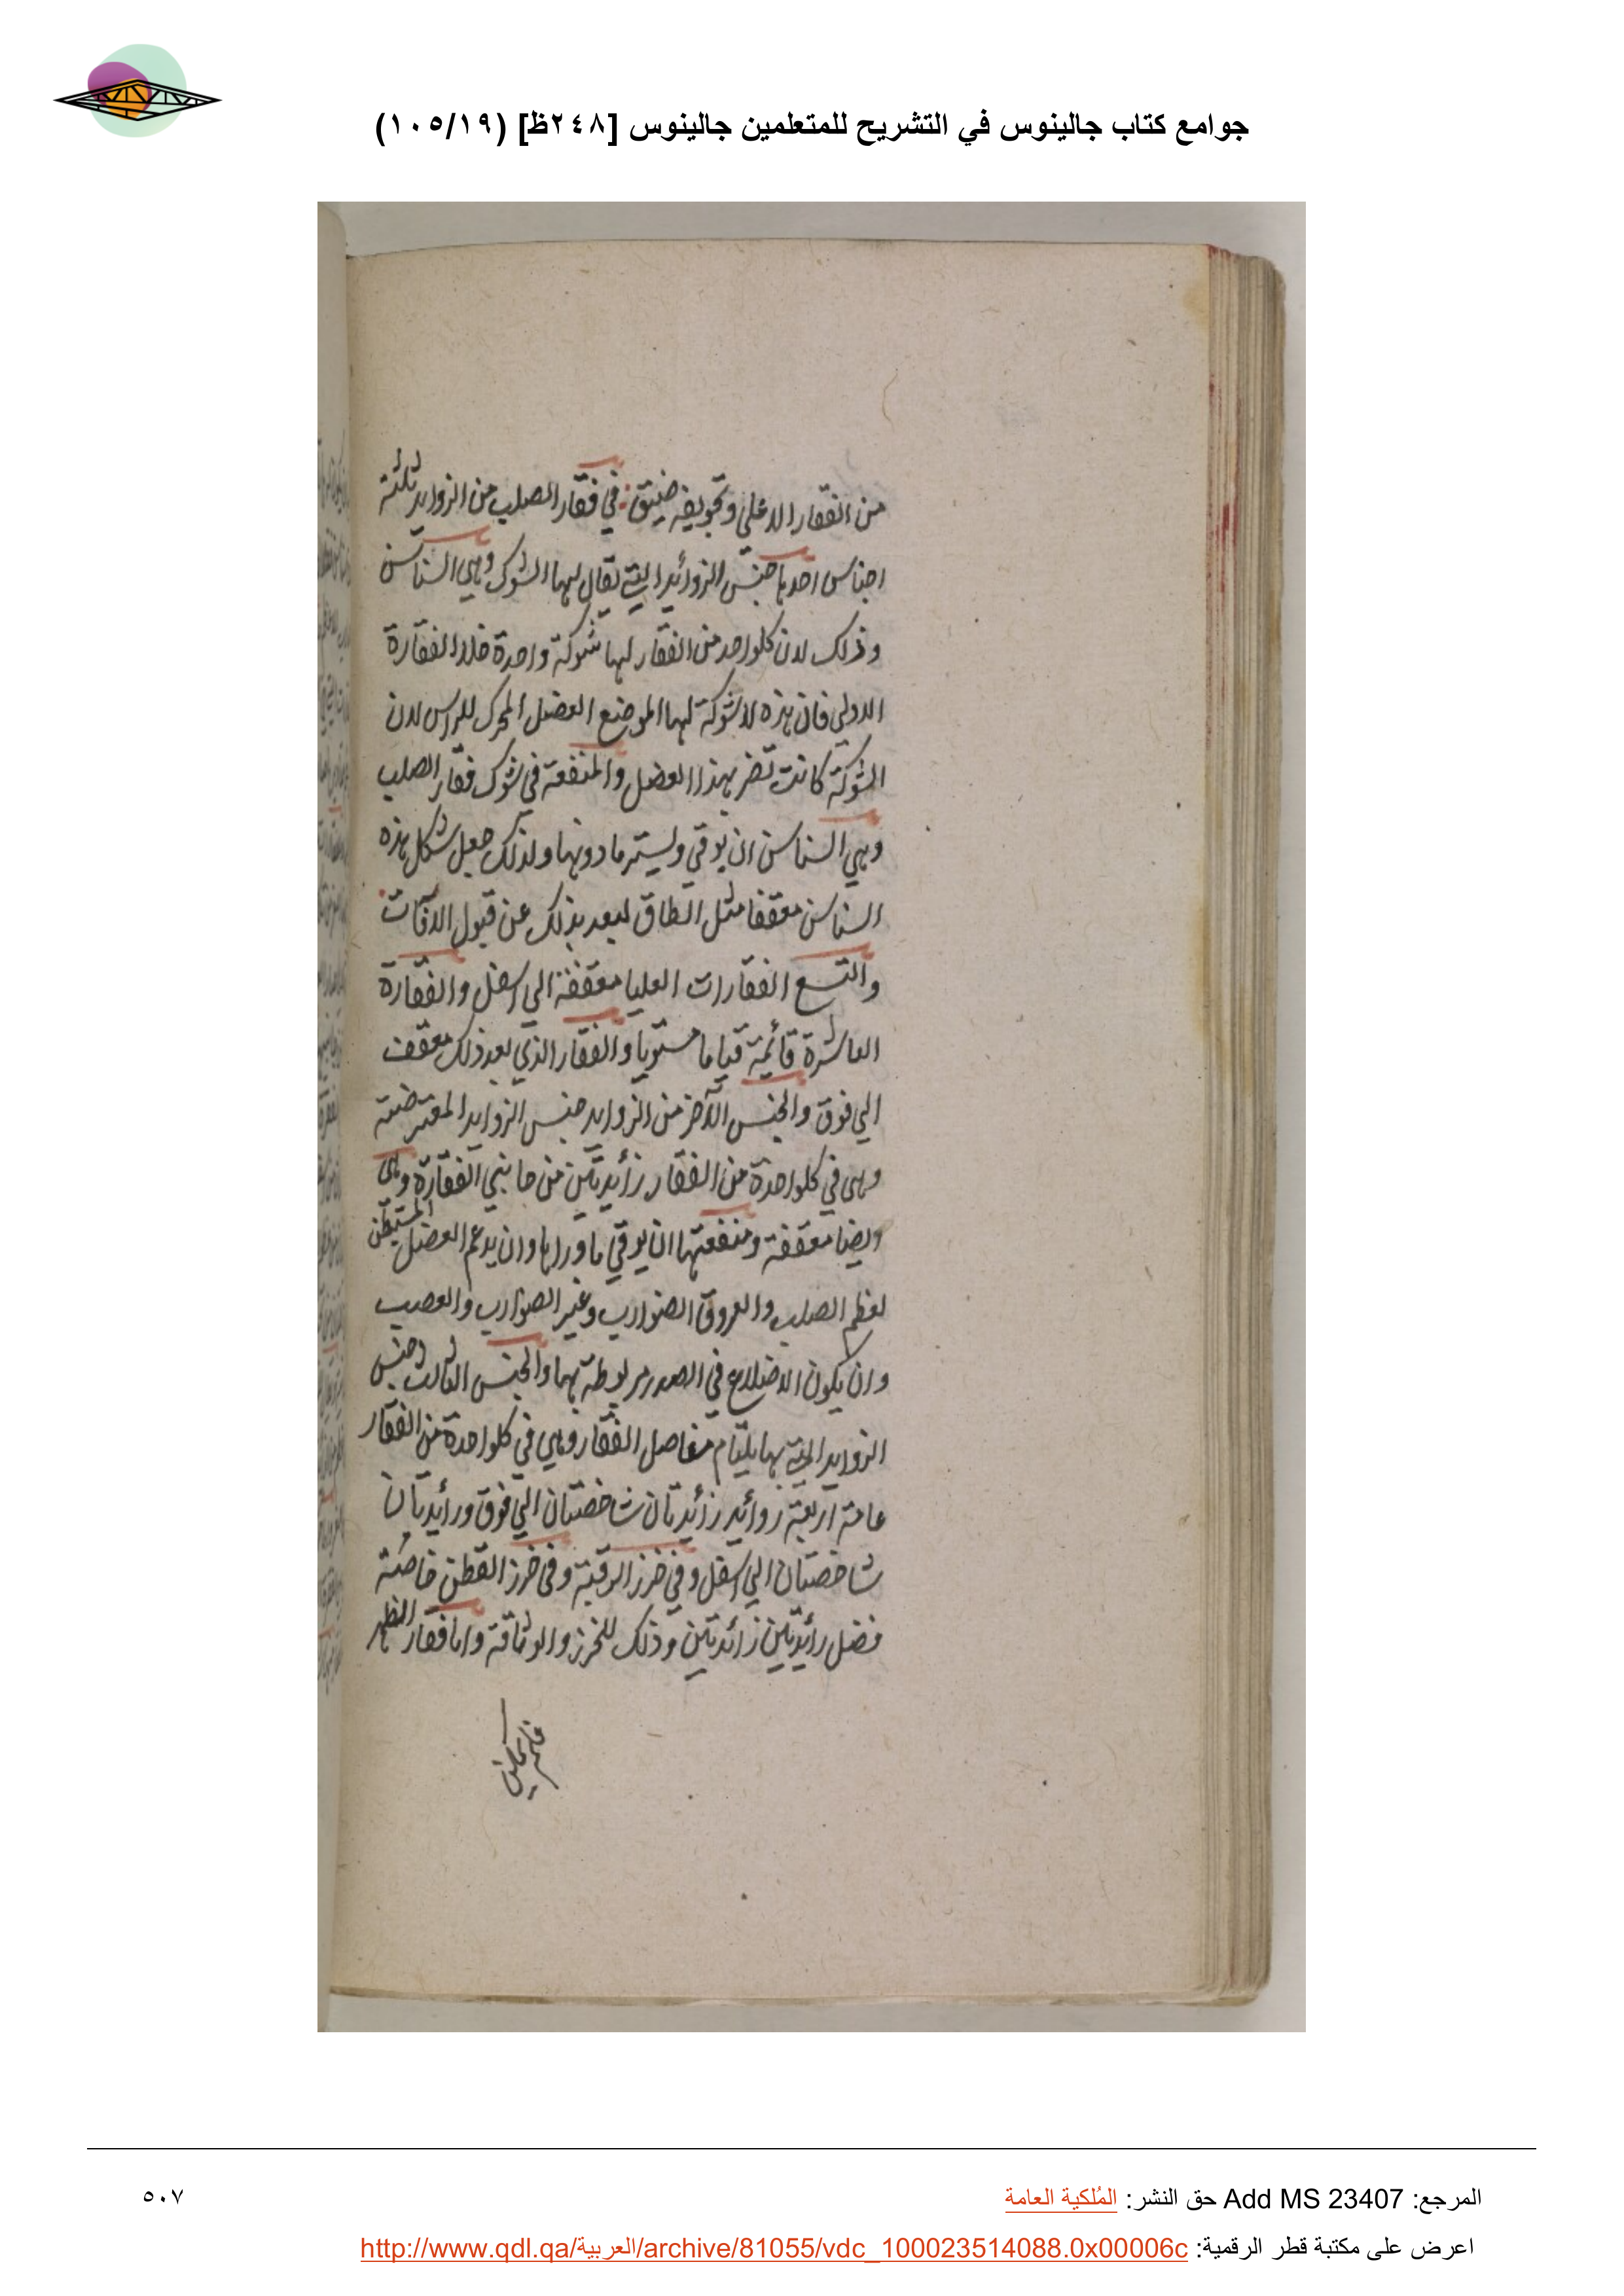 جوامع كتاب جالينوس في التشريح للمتعلمين جالينوس [٢٤٨ظ] (١٠٥/١٩)
من الفقار الاعلي وتجويفه ضيق في فقار الصلب من الزوايد ثلثة
اجناس احدها جنس الزوائد التي يقال لها الشوك وهي السناسن
وذلك لان كلواحد من الفقار لها شوكة واحدة خلا الفقارة
الاولي فان هذه لا شوكة لها لموضع العضل المحرك للراس لان
الشوكة كانت تضر بهذا العضل والمنفعة في شوك فقار الصلب
وهي السناسن ان يوقي ويستر ما دونها ولذلك جعل شكل هذه
السناسن معقفا مثل الطاق ليبعد بذلك عن قبول الآفات
والتسع الفقارات العليا معقفة الي اسفل والفقارة
العاشرة قائمة قياما مستويا والفقار الذي بعد ذلك معقف
الي فوق والجنس الآخر من الزوايد جنس الزوايد المعترضة
وهي في كلواحدة من الفقار زائدتين من جانبي الفقارة وهي
وايضا معقفة ومنفعتها ان يوقي ما وراها وان يدعم العضل المستبطن
لعظم الصلب والعروق الضوارب وغير الضوارب والعصب
وان يكون الاضلاع في الصدر مربوطة بها والجنس الثالث جنس
الزوايد التي بها يلتام مفاصل الفقار وهي في كلواحدة من الفقار
عامة اربعة زوائد زائدتان شاخصتان الي فوق وزائدتان
شاخصتان الي اسفل وفي خرز الرقبة وفي خرز القطن خاصة
فضل زائدتين زائدتين وذلك للحرز والوثاقة واما فقار الظهر
المرجع: Add MS 23407 حق النشر: المُلكية العامة
٥٠٧
اعرض على مكتبة قطر الرقمية: http://www.qdl.qa/العربية/archive/81055/vdc_100023514088.0x00006c